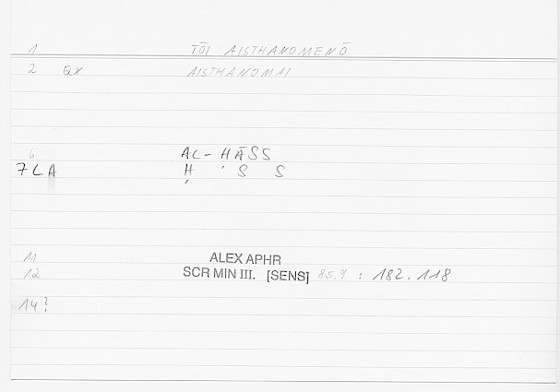 1 TŌI AISTHANOMENŌ
2 QX AISTHANOMAI
6 AL-ḤĀSS
7LA Ḥ ' S S
11 ALEX APHR
12 SCR MIN III. [SENS] 85.9 : 182.118
14?